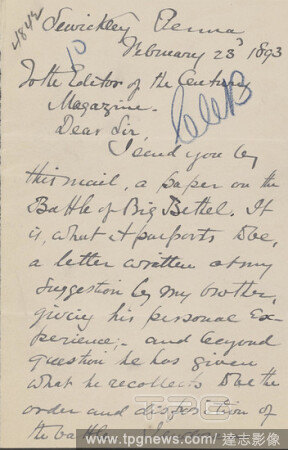 4842
Sewickley Penna
February 23d 1893
To the Editor of the Century
Magazine.
Dear Sir,
I send you by
this mail, a paper on the
Battle of Big Bethel. It
is, what it purports to be,
a letter written at my
suggestion by my brother,
giving his personal Ex-
perience; - and beyond
question he has given
what he recollects to be the
order and disposition of
the battle
TPG
www.tpgnews.com / 達志影像